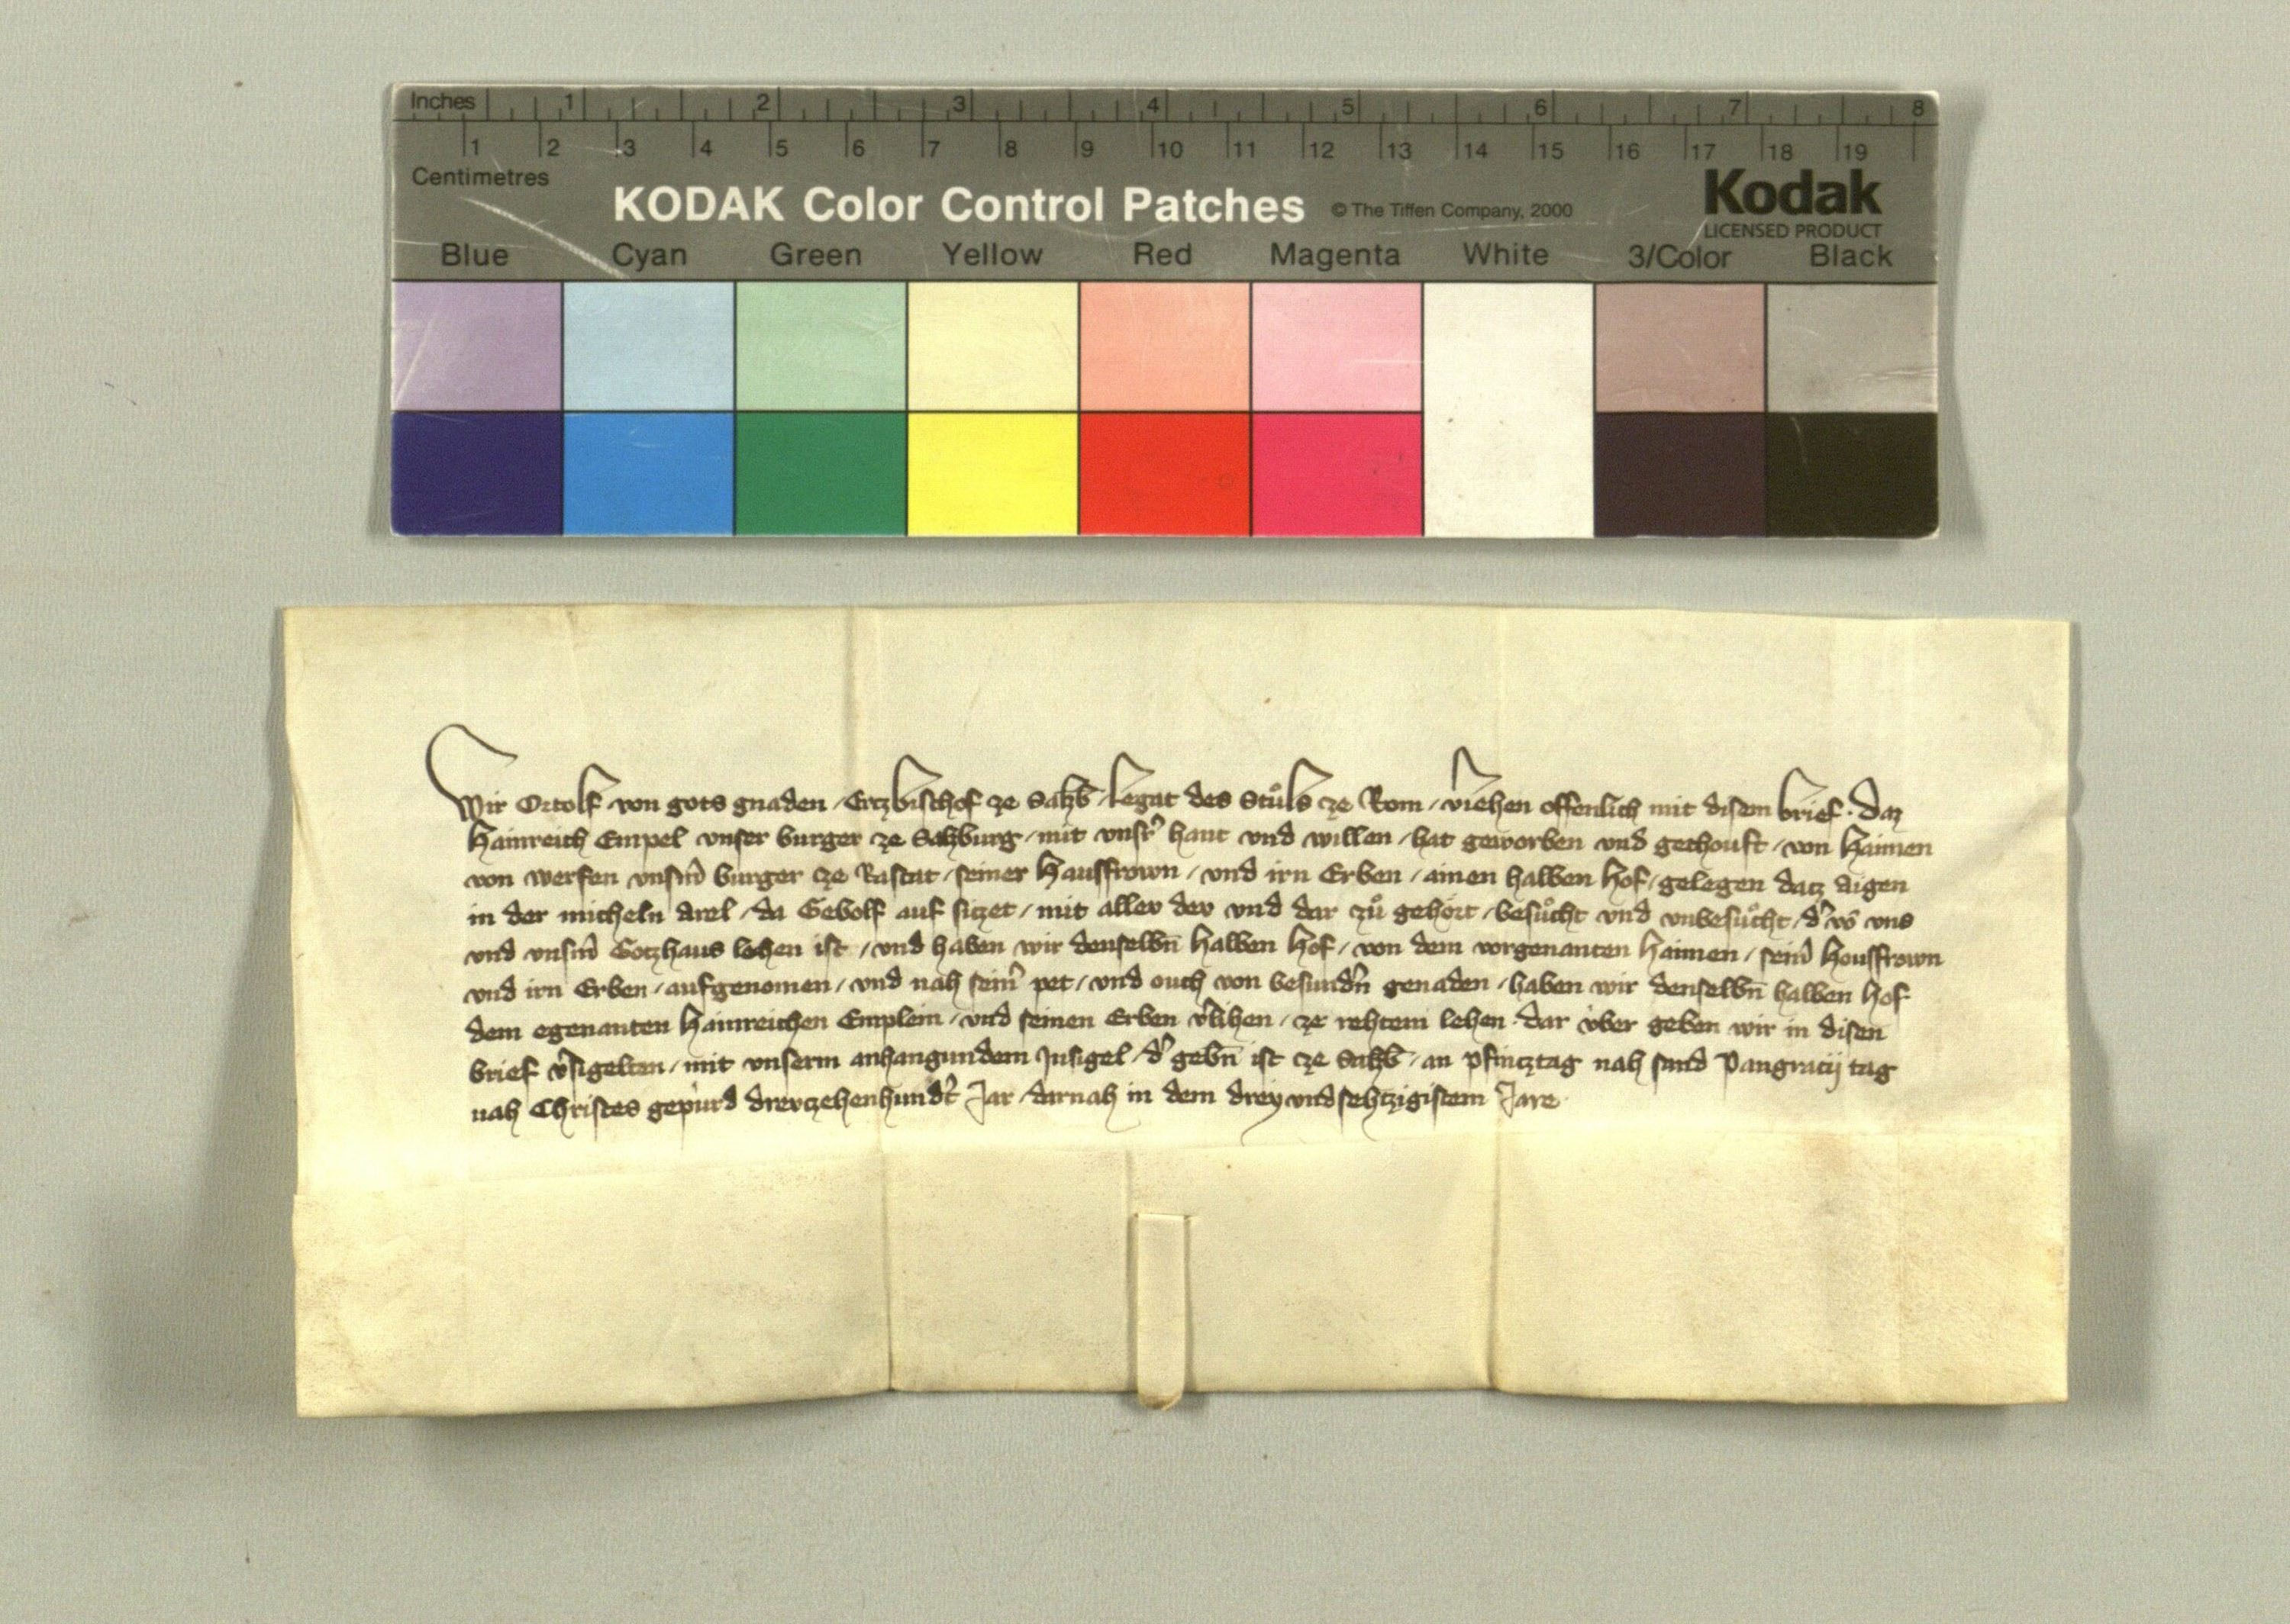 Inches 1 2 3 4 5 6 7 8
1 2 3 4 5 6 7 8 9 10 11 12 13 14 15 16 17 18 19
Centimetres
KODAK Color Control Patches © The Tiffen Company, 2000 Kodak
LICENSED PRODUCT
Blue Cyan Green Yellow Red Magenta White 3/Color Black
Wir Ortolf von gots gnaden / Ertzbischof ze Salzb̄ / Legat des Stůls ze Rom / viehen offenlich mit disem brief · Daz
Hainreich Empel vnser burger ze Salzburg / mit vnsr̾ hant vnd willen / hat geworben vnd gechouft / von Haimen
von Werfen vnsm̾ burger ze Rastat / seiner Hausfrown / vnd irn Erben / ainen halben Hof / gelegen datz Aigen
in der micheln Arel / da Gebolf auf sitzet / mit aller der vnd dar zů gehört / besůcht vnd vnbesůcht / d̾ vō vns
vnd vnsm̾ Gotzhaus lehen ist / vnd haben wir denselbn̄ halben Hof / von dem vorgenanten Haimen / sein̾ Housfrown
vnd irn Erben / aufgenomen / vnd nah seim̾ pet / vnd ouch von besundn̾ genaden / haben wir denselbn̄ halben Hof
dem egenanten Hainreichen Emplein / vnd seinen Erben v̾lihen / ze rehtem lehen · Dar vber geben wir in disen
brief v̾sigelten / mit vnserm anhangundem Insigel / d̾ gebn̄ ist ze Salzb̄ / an Pfincztag nah sand Pangracij tag
nah Christes gepurd drevczehenhundt̾ Jar / darnah in dem drey vnd sehtzigistem Jare